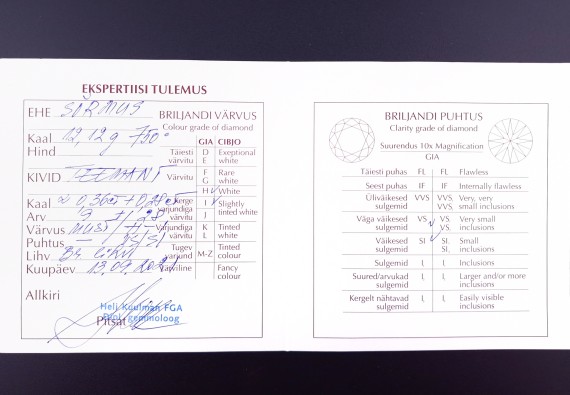 EKSPERTIISI TULEMUS
EHE SÕRMUS
Kaal 12,12 g 750°
Hind
KIVID TEEMANT
Kaal
Arv
Värvus MUST / H-I
Puhtus
Lihv
Kuupäev 13,09,
Allkiri
Heli Kauiman FGA
gemmoloog
Pitsat
BRILJANDI VÄRVUS
Colour grade of diamond
GIA CIBJO
Täiesti värvitu D E Exeptional white
Värvitu F G Rare white
H White
Kerge värjundiga I J Slightly tinted white
Värjundiga värvitu K L Tinted white
Tugev M-Z Tinted colour
Värviline Fancy colour
BRILJANDI PUHTUS
Clarity grade of diamond
Suurendus 10x Magnification
GIA
Täiesti puhas FL FL Flawless
Seest puhas IF IF Internally flawless
Üliväikesed sulgemid VVS VVS VVS Very, very small inclusions
Väga väikesed sulgemid VS VS VS Very small inclusions
Väikesed sulgemid SI SI SI Small inclusions
Sulgemid I I Inclusions
Suured/arvukad sulgemid I I Larger and/or more inclusions
Kergelt nähtavad sulgemid I I Easily visible inclusions